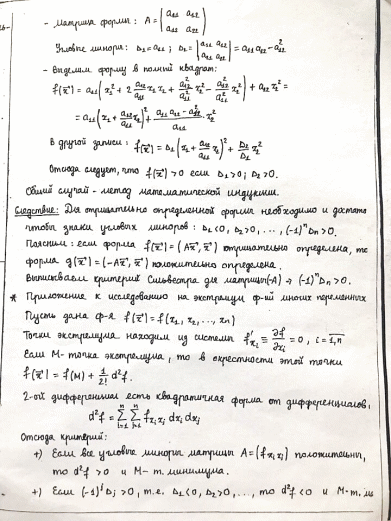 - Матрица формы: A = (a₁₁ a₁₂ / a₂₁ a₂₂)
Угловые миноры: D₁ = a₁₁; D₂ = |a₁₁ a₁₂ / a₂₁ a₂₂| = a₁₁a₂₂ - a₁₂²
- Выделим форму в полный квадрат:
f(x⃗) = a₁₁(x₁² + 2 a₁₂/a₁₁ x₁x₂ + a₁₂²/a₁₁² x₂² - a₁₂²/a₁₁² x₂²) + a₂₂x₂² =
= a₁₁(x₁ + a₁₂/a₁₁ x₂)² + (a₁₁a₂₂ - a₁₂²)/a₁₁ · x₂²
В другой записи: f(x⃗) = D₁(x₁ + a₁₂/a₁₁ x₂)² + D₂/D₁ x₂²
Отсюда следует, что f(x⃗) > 0 если D₁ > 0; D₂ > 0.
Общий случай - метод математической индукции.
Следствие: Для отрицательно определенной формы необходимо и достато
чтобы знаки угловых миноров: D₁<0, D₂>0, ..., (-1)ⁿDₙ>0.
Поясним: если форма f(x⃗) = (Ax⃗, x⃗) отрицательно определена, то
форма g(x⃗) = (-Ax⃗, x⃗) положительно определена.
Выписываем критерий Сильвестра для матрицы(-A) → (-1)ⁿDₙ>0.
* Приложение к исследованию на экстремум ф-ий многих переменных
Пусть дана ф-я f(x⃗) = f(x₁, x₂, ..., xₙ)
Точки экстремума находим из системы f'ₓᵢ ≡ ∂f/∂xᵢ = 0, i = 1,n
Если М- точка экстремума, то в окрестности этой точки
f(x⃗) = f(M) + 1/2! d²f.
2-ой дифференциал есть квадратичная форма от дифференциалов,
d²f = Σⁿᵢ₌₁ Σⁿⱼ₌₁ fₓᵢₓⱼ dxᵢ dxⱼ
Отсюда критерий:
+) Если все угловые миноры матрицы A = (fₓᵢₓⱼ) положительны,
то d²f > 0 и М- т. минимума.
+) Если (-1)ʲDⱼ > 0, т.е. D₁<0, D₂>0, ..., то d²f < 0 и М- т.